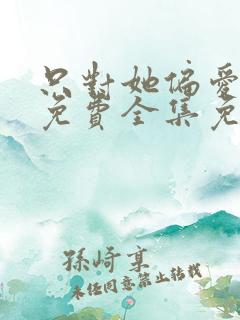 只對她偏愛
免費全集免
孫崎享
未经同意禁止转载